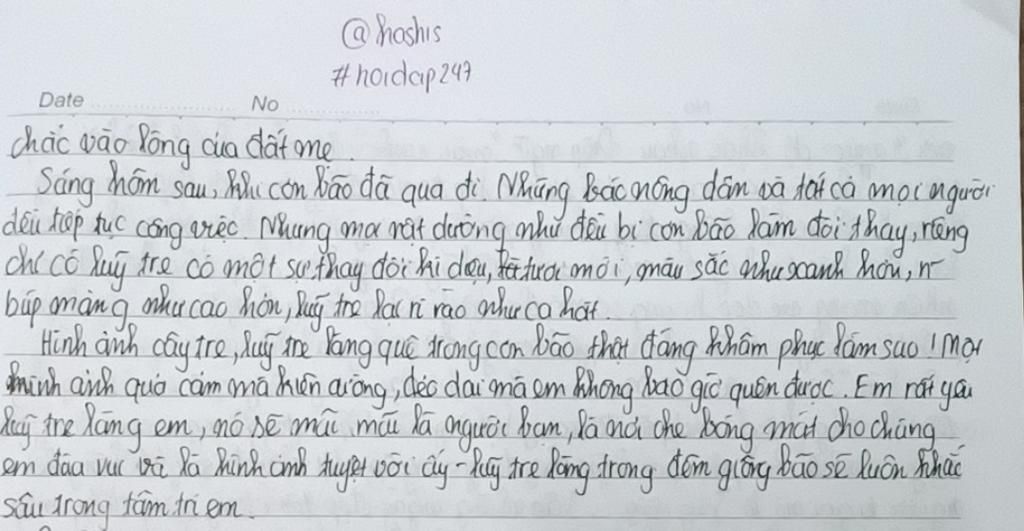 @hoshis
#hoidap247
Date No
chắc vào lòng của đất mẹ.
Sáng hôm sau, khi cơn bão đã qua đi. Những bác nông dân và tất cả mọi người
đều tiếp tục công việc. Nhưng mọi vật dường như đều bị cơn bão làm đổi thay, riêng
chỉ có luỹ tre có một sự thay đổi kì diệu, tươi mới, màu sắc như xanh hơn,
búp măng như cao hơn, luỹ tre lại rì rào như ca hát.
Hình ảnh cây tre, luỹ tre làng quê trong cơn bão thật đáng khâm phục làm sao! Một
hình ảnh quả cảm mà kiên cường, dẻo dai mà em không bao giờ quên được. Em rất yêu
luỹ tre làng em, nó sẽ mãi mãi là người bạn, là nơi che bóng mát cho chúng
em và là hình ảnh tuyệt vời ấy - luỹ tre làng trong đêm giông bão sẽ luôn khắc
sâu trong tâm trí em.